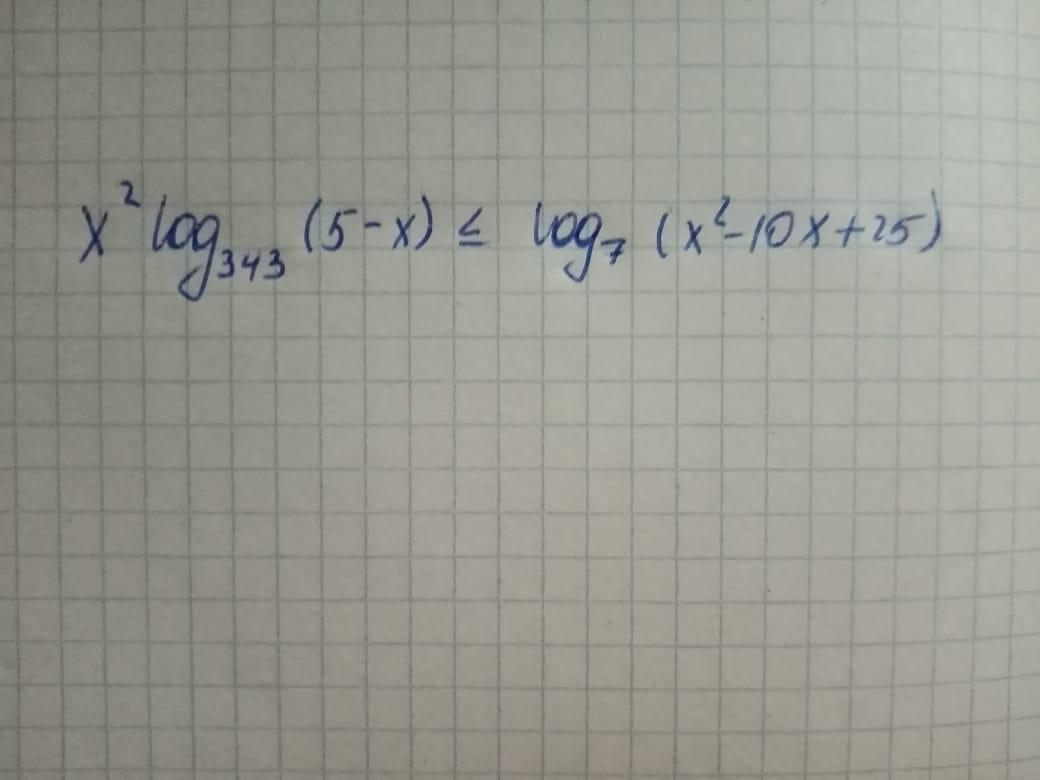 x² log₃₄₃ (5-x) ≤ log₇ (x²-10x+25)